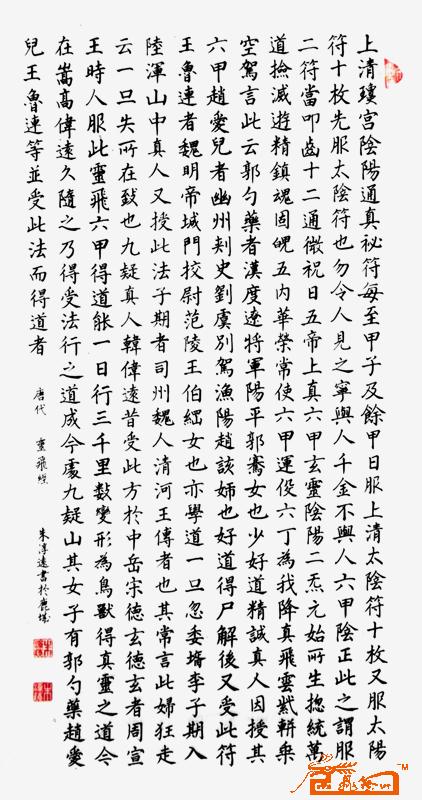 上清瓊宮陰陽通真祕符每至甲子及餘甲日服上清太陰符十枚又服太陽
符十枚先服太陰符也勿令人見之寧與人千金不與人六甲陰正此之謂服
二符當叩齒十二通微祝曰五帝上真六甲玄靈陰陽二炁元始所生揔統萬
道撿滅遊精鎮魂固魄五內華榮常使六甲運役六丁為我降真飛雲紫軿乘
空駕言此云郭勺藥者漢度遼將軍陽平郭騫女也少好道精誠真人因授其
六甲趙愛兒者幽州刾史劉虞別駕漁陽趙該姉也好道得尸解後又受此符
王魯連者魏明帝城門挍尉范陵王伯綱女也亦學道一旦忽委壻李子期入
陸渾山中真人又授此法子期者司州魏人清河王傳者也其常言此婦狂走
云一旦失所在
致也九疑真人韓偉遠昔受此方於中岳宋德玄德玄者周宣
王時人服此靈飛六甲得道能一日行三千里數變形為鳥獸得真靈之道今
在嵩高偉遠久隨之乃得受法行之道成今處九疑山其女子有郭勺藥趙愛
兒王魯連等並受此法而得道者
唐代 靈飛經
朱淳遠書於鹿城